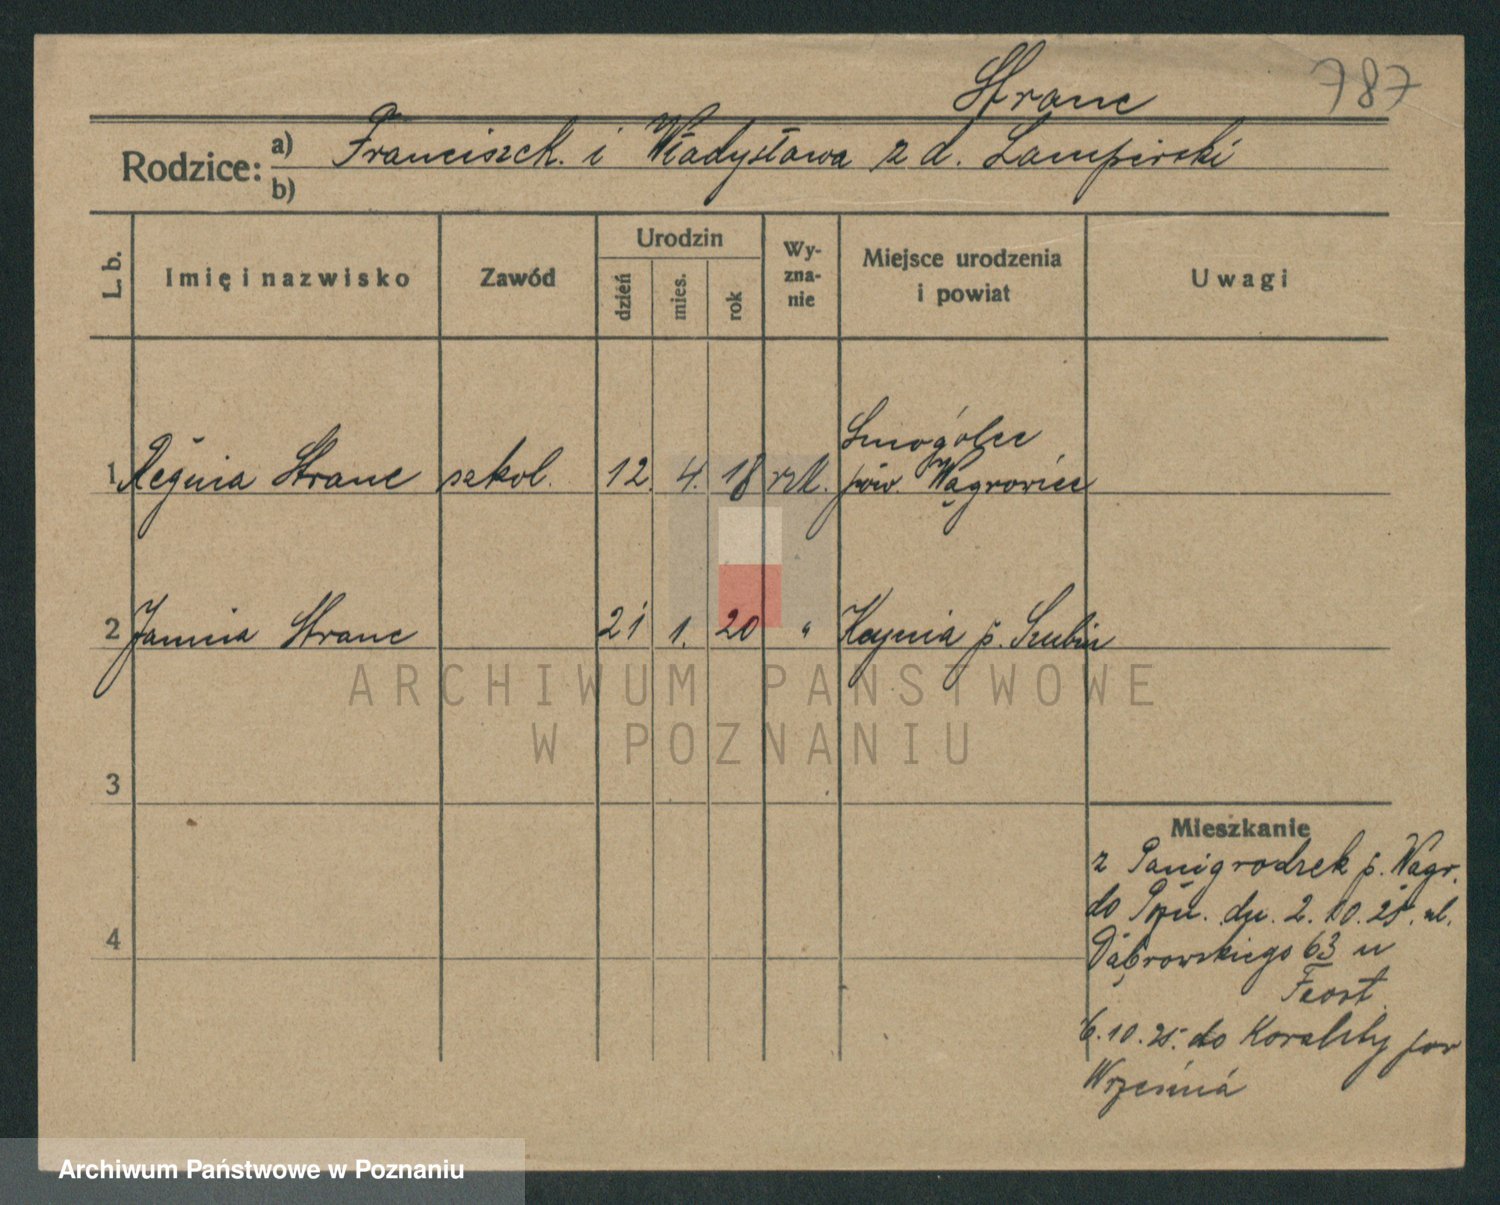 Stranc 787
Rodzice: a) Franciszek. i Władysława z d. Lampirski
b)
L. b. Imię i nazwisko Zawód Urodzin dzień mies. rok Wyznanie Miejsce urodzenia i powiat Uwagi
Smogólec
1 Regina Stranc szkol. 12. 4. 18 rzk. pow. Wągrowiec
2 Janina Stranc 21 1. 20 " Kcynia p. Szubin
3
Mieszkanie
z Panigrodzek p. Wągr.
4 do Pozn. dn. 2. 10. 25. ul.
Dąbrowskiego 63 u
6. 10. 25. do pow
Września
ARCHIWUM PAŃSTWOWE
W POZNANIU
Archiwum Państwowe w Poznaniu